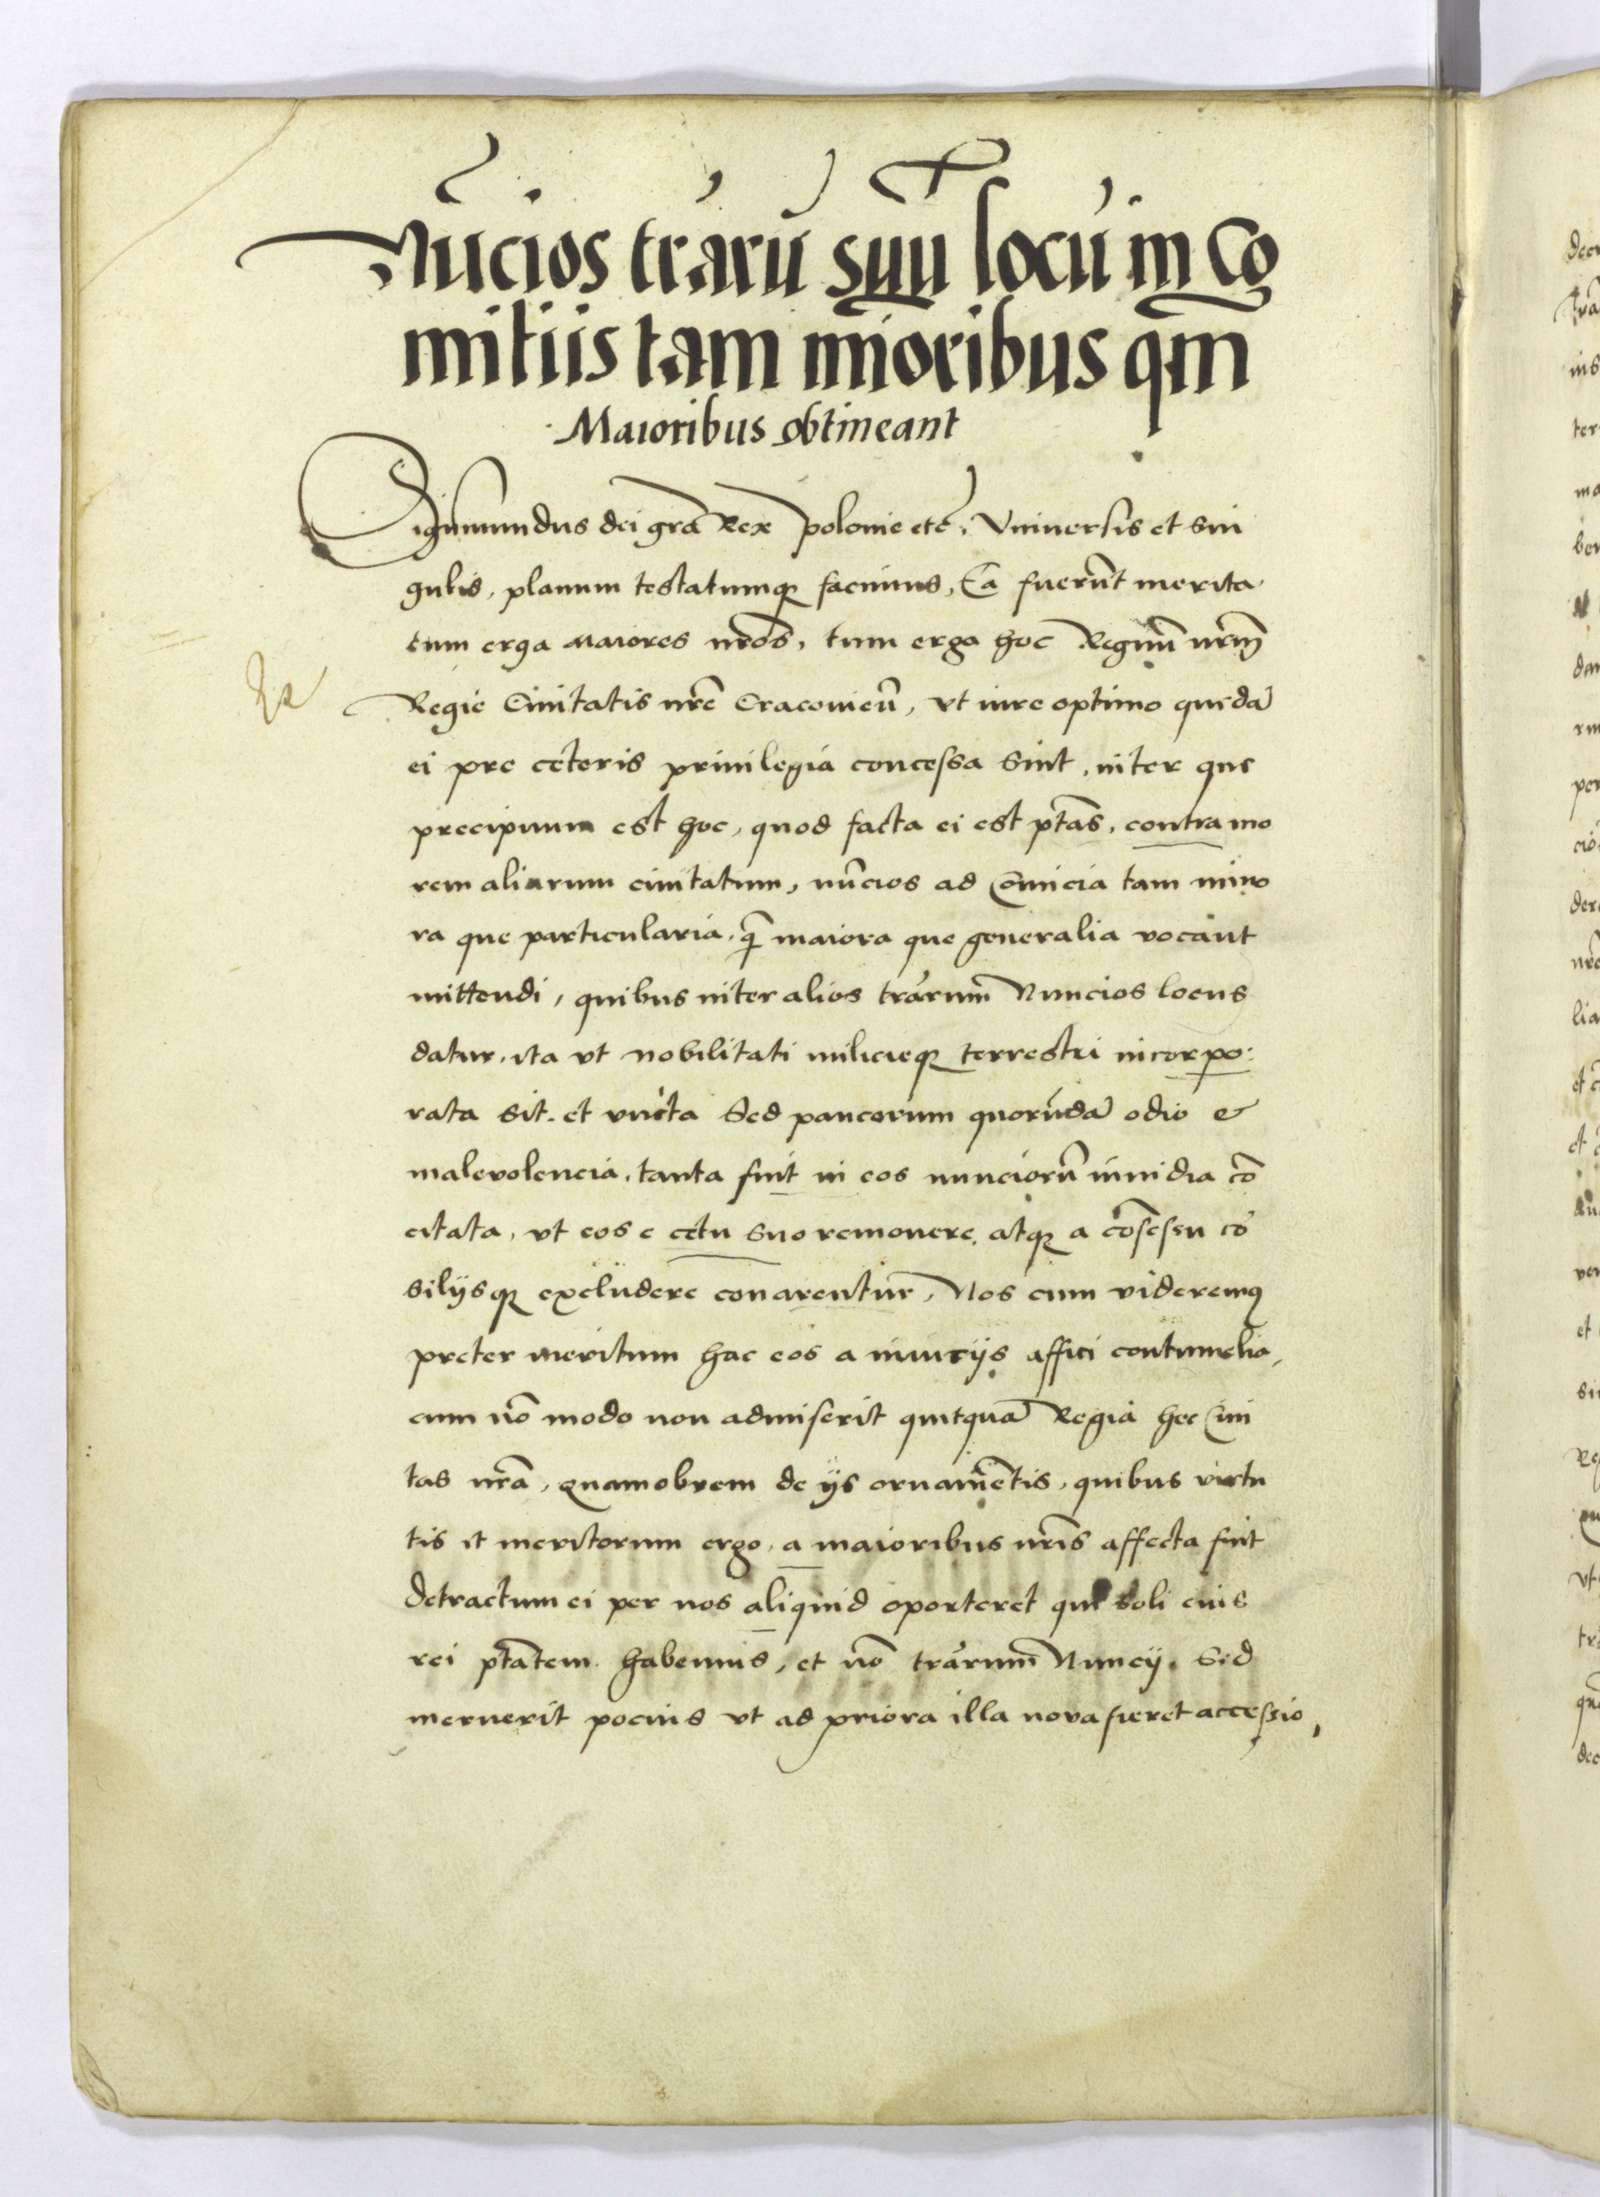 Nūcios trārū suū locū in Co
mitiis tam mīoribus qm̄
Maioribus obtineant
Sigismundus dei grā Rex polonie etc̄, Vniuersis et sin
gulis, planum testatumqʒ facimus, Ea fuerūt merita
tum erga maiores nrōs, tum erga hoc Regnū nrm̄
Regie Ciuitatis nrē Cracouieñ, vt iure optimo quedā
ei pre ceteris priuilegia concessa sint, inter que
precipuum est hoc, quod facta ei est ptās, contra mo
rem aliarum ciuitatum, nūcios ad Comicia tam mino
ra que particularia, qm̄ maiora que generalia vocant
mittendi, quibus inter alios trārum Nuncios locus
datur, ita vt nobilitati milicieqʒ terrestri incorpo:
rata sit. et vnita Sed paucorum quorūdā odio et
malevolencia, tanta fuit in eos nunciorū inuidia cō
citata, vt eos e cetu suo remouere, atqʒ a cōsessu cō
silijsqʒ excludere conarentur, Nos cum videremus
preter meritum hac eos a iniurijs affici contumelia,
cum nō modo non admiserit quitquā Regia hec Ciui
tas nrā, quamobrem de ijs ornamētis, quibus virtu
tis et meritorum ergo, a maioribus nrīs affecta fuit
detractum ei per nos aliquid oporteret qui soli eius
rei ptātem habemus, et nō trārum Nuncij. Sed
meruerit pocius vt ad priora illa nova fieret accessio,